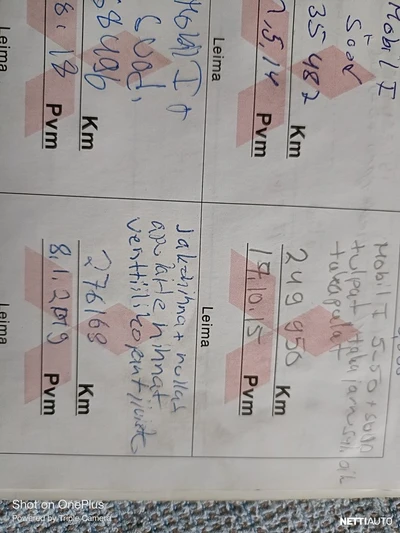 Mobil I
35 482 Km
5.14 Pvm
Leima
Mobil I 5-50 + suod.
tulpat + taka
takapalat
249 950 Km
19.10.15 Pvm
Leima
Mobil I +
suod.
68496 Km
8.18 Pvm
Leima
Jakohihna + rullat
apulaitehihnat
venttiilikopantiiviste
276169 Km
8.1.2019 Pvm
Leima
Shot on OnePlus
Powered by Triple Camera
NETTIAUTO